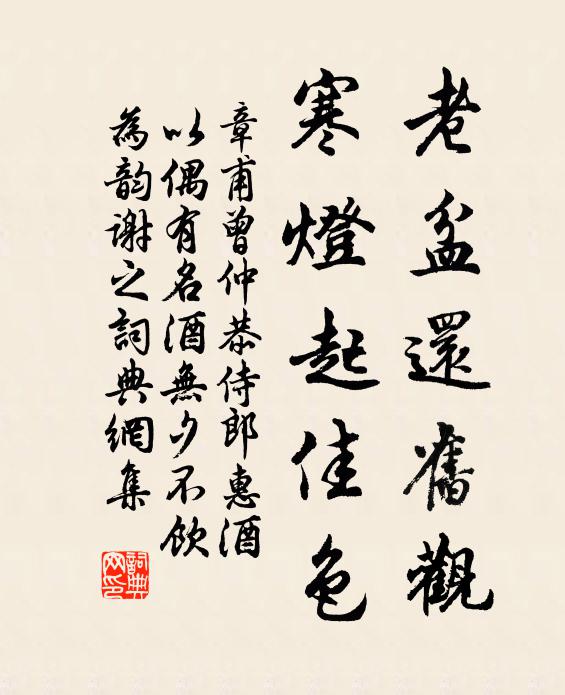 老盆還舊觀
寒燈起佳色
章甫曾仲恭侍郎惠酒
以偶有名酒無夕不飲
為韵謝之詞典網集
詞典網印